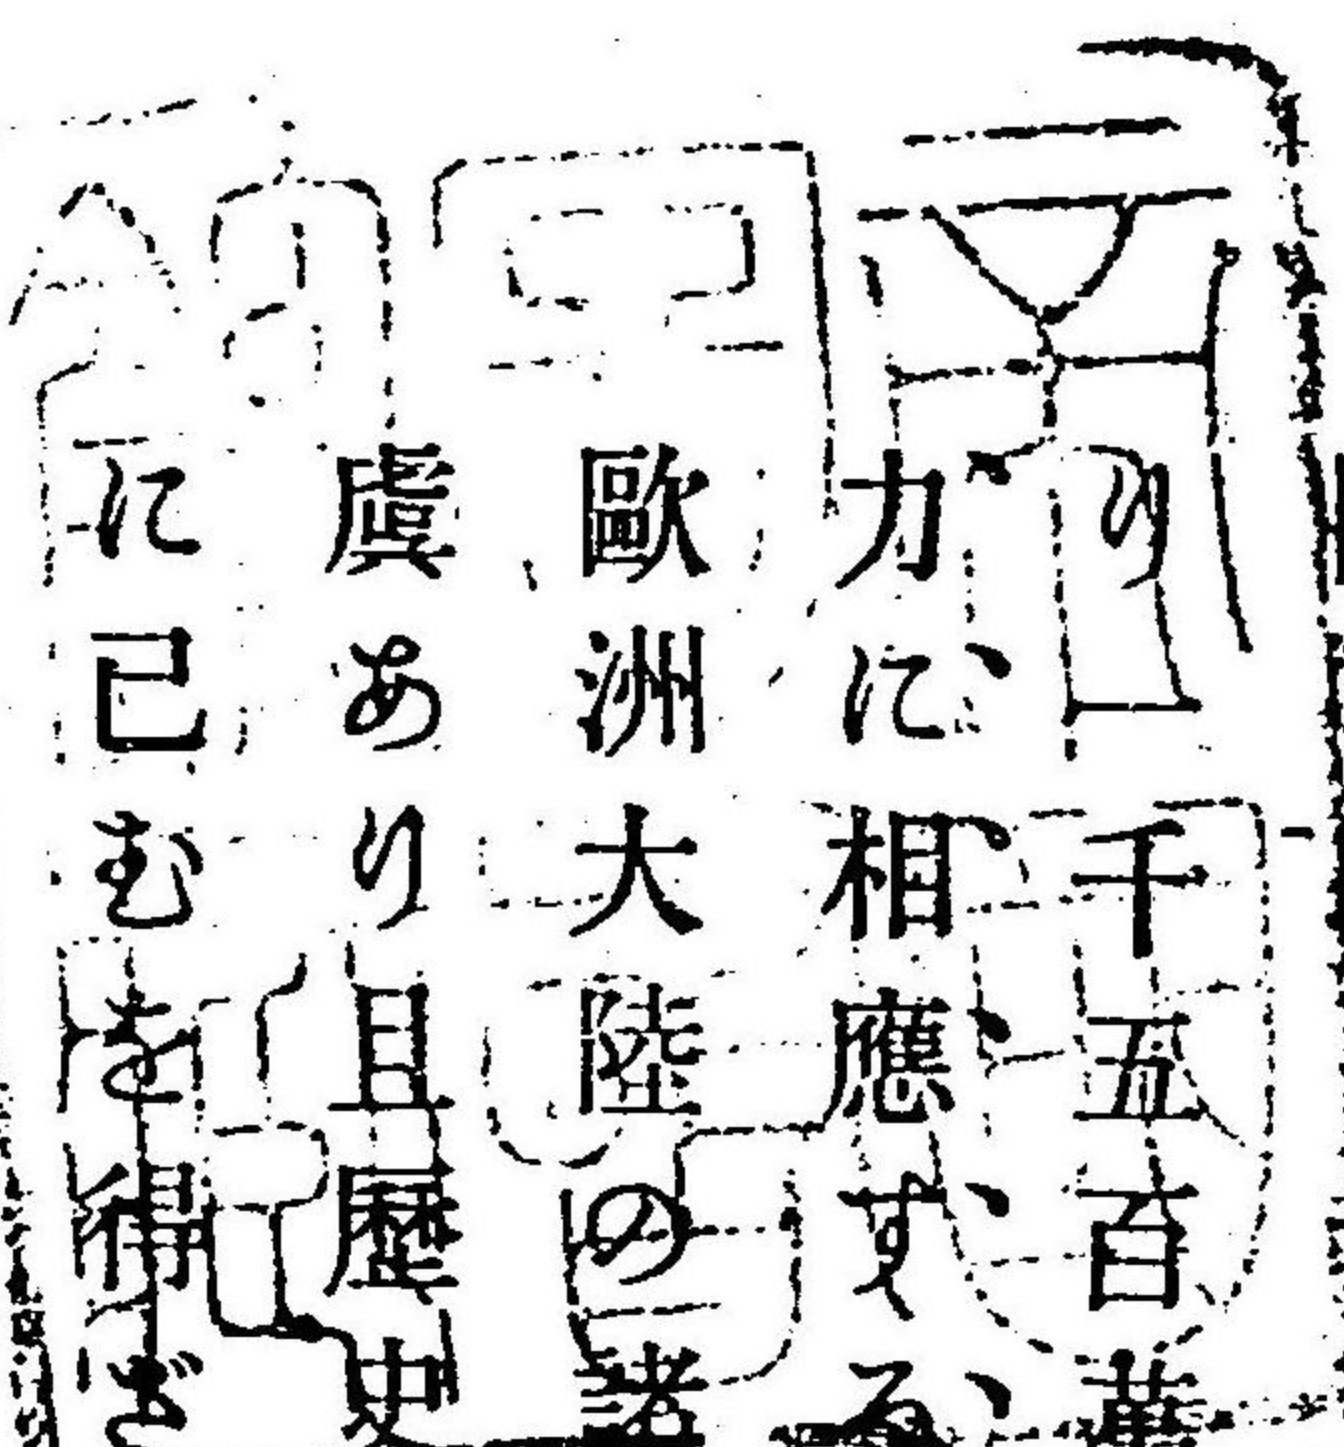 り千五百萬
力に相應する
歐洲大陸の諸
虞あり且歷史
に已むを得ざ